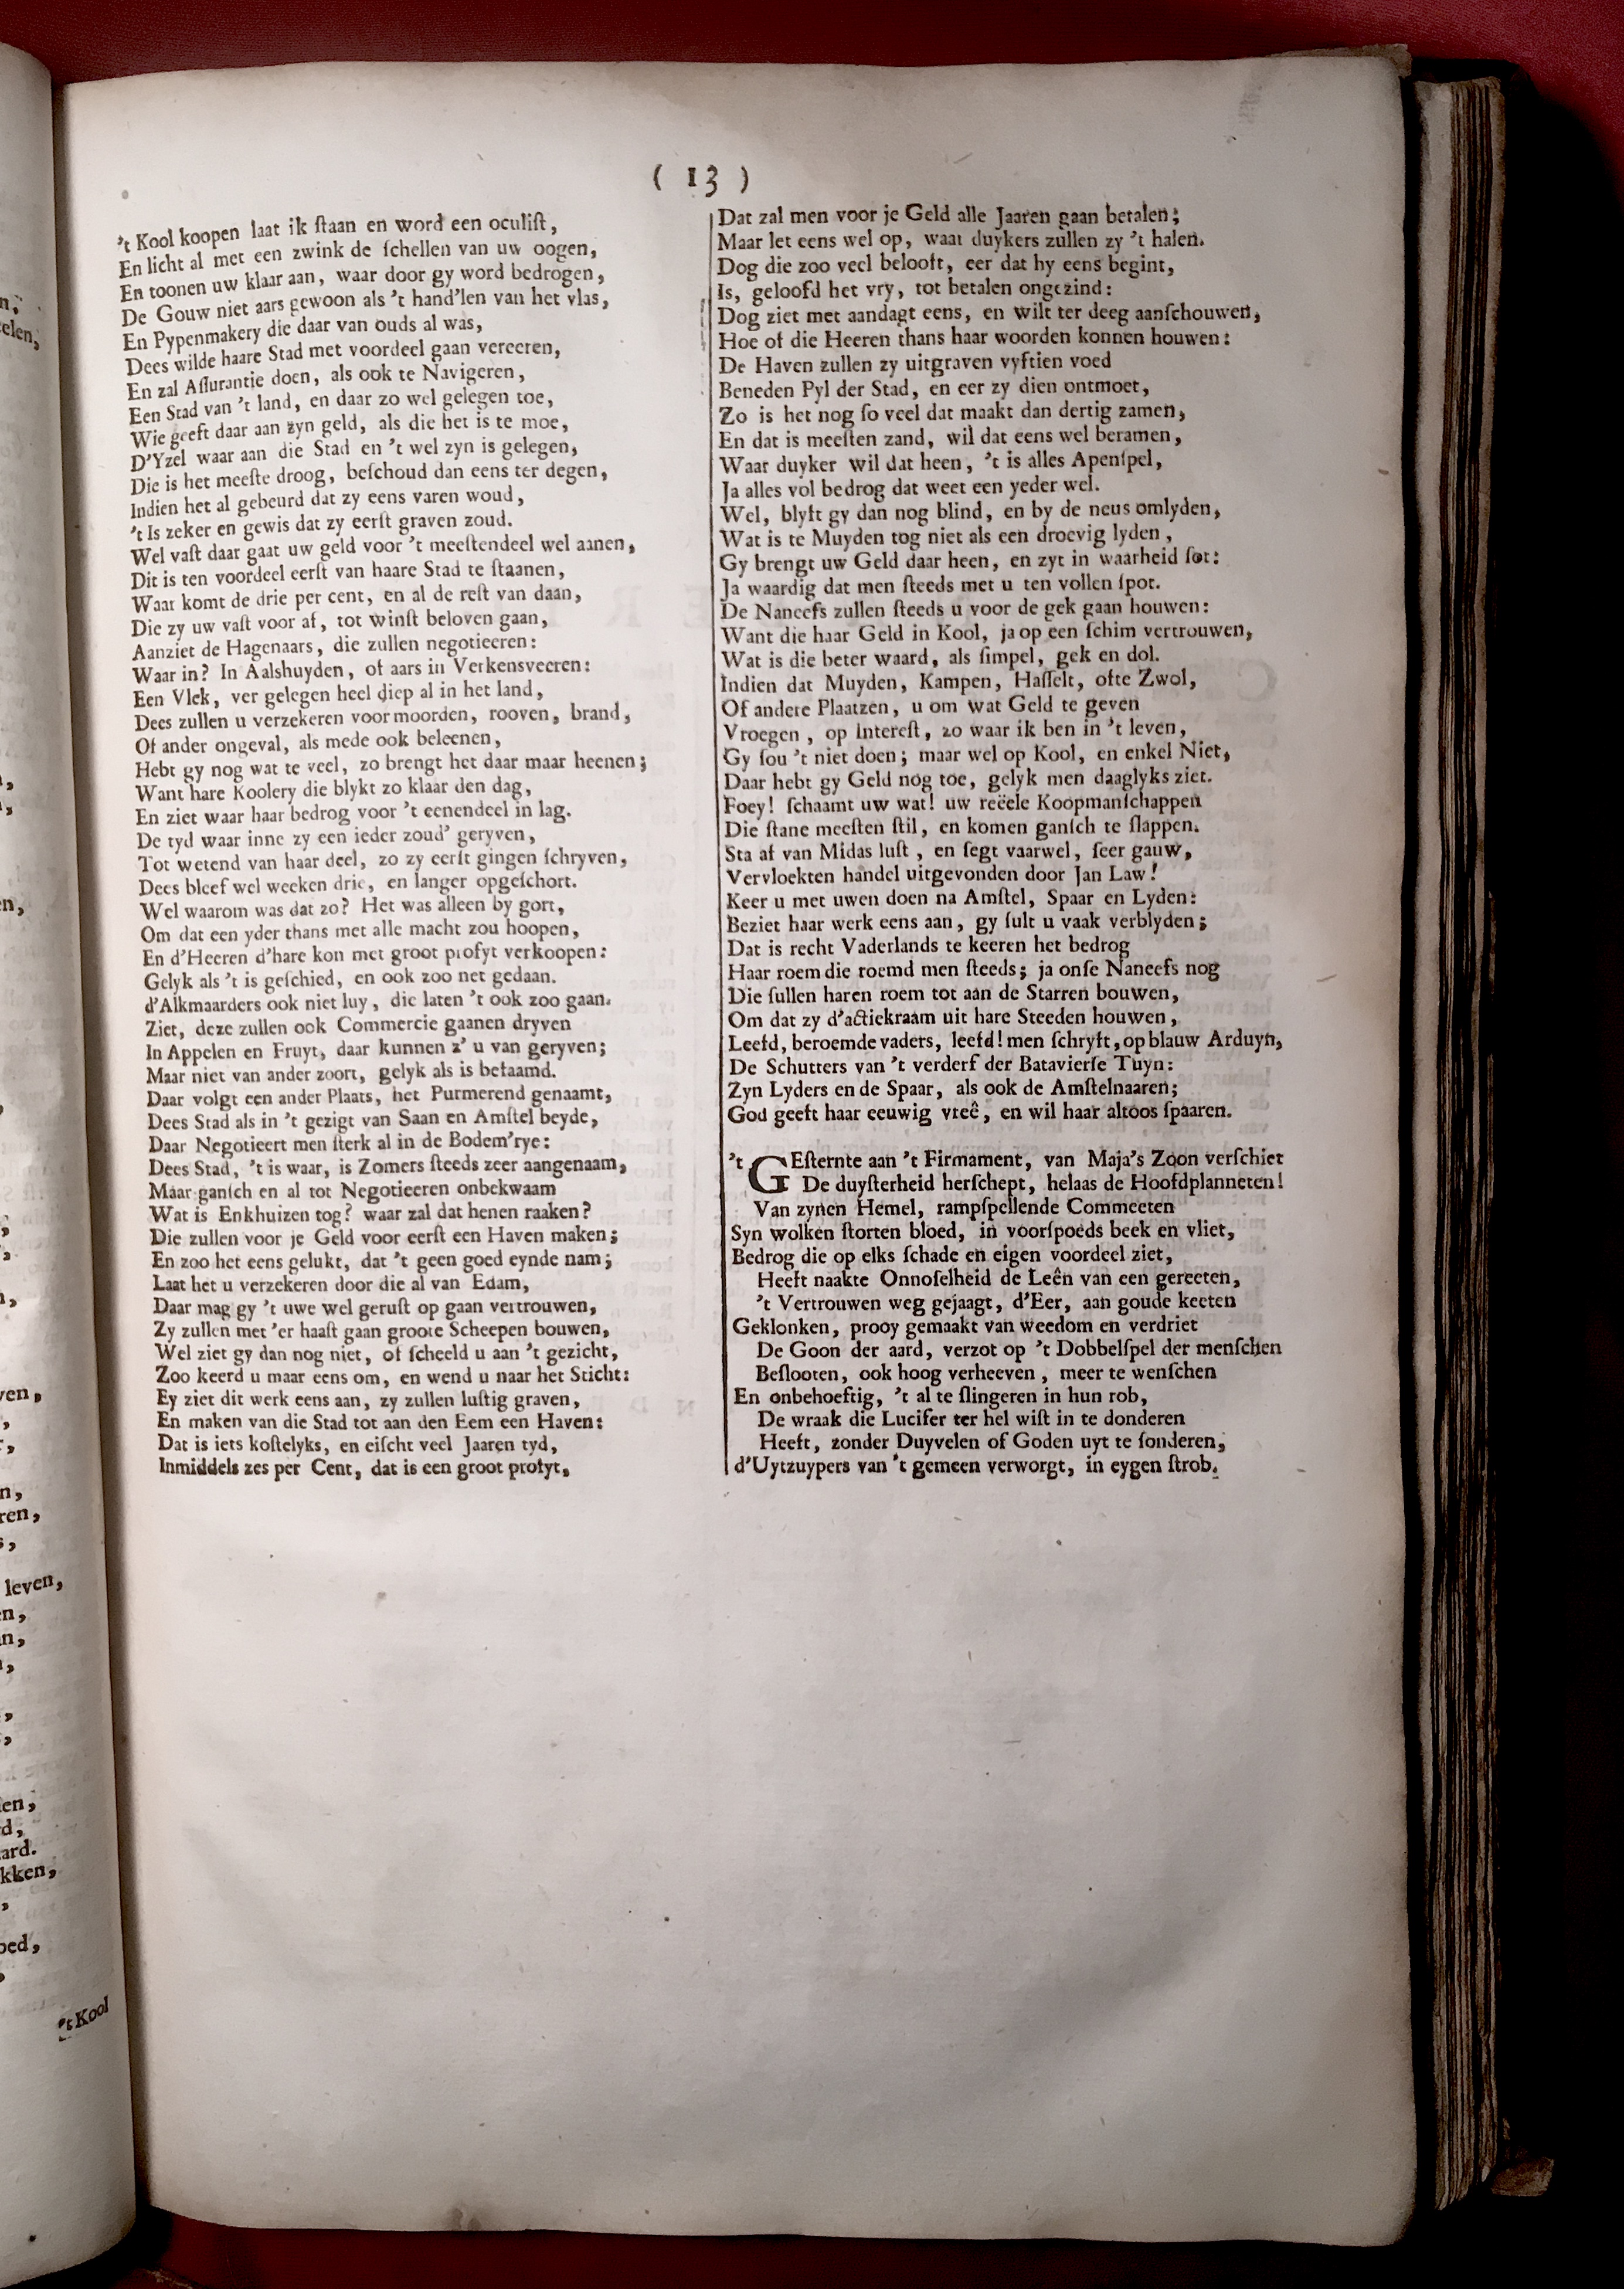 ( 13 )
't Kool koopen laat ik ſtaan en word een oculiſt,
En licht al met een zwink de ſchellen van uw oogen,
En toonen uw klaar aan, waar door gy word bedrogen,
De Gouw niet aars gewoon als 't hand'len van het vlas,
En Pypenmakery die daar van ouds al was,
Dees wilde haare Stad met voordeel gaan vereeren,
En zal Aſſurantie doen, als ook te Navigeren,
Een Stad van 't land, en daar zo wel gelegen toe,
Wie geeft daar aan zyn geld, als die het is te moe,
D'Yzel waar aan die Stad en 't wel zyn is gelegen,
Die is het meeſte droog, beſchoud dan eens ter degen,
Indien het al gebeurd dat zy eens varen woud,
't Is zeker en gewis dat zy eerſt graven zoud.
Wel vaſt daar gaat uw geld voor 't meeſtendeel wel aanen,
Dit is ten voordeel eerſt van haare Stad te ſtaanen,
Waar komt de drie per cent, en al de reſt van daan,
Die zy uw vaſt voor af, tot winſt beloven gaan,
Aanziet de Hagenaars, die zullen negotieeren:
Waar in? In Aalshuyden, of aars in Verkensveeren:
Een Vlek, ver gelegen heel diep al in het land,
Dees zullen u verzekeren voor moorden, rooven, brand,
Of ander ongeval, als mede ook beleenen,
Hebt gy nog wat te veel, zo brengt het daar maar heenen;
Want hare Koolery die blykt zo klaar den dag,
En ziet waar haar bedrog voor 't eenendeel in lag.
De tyd waar inne zy een ieder zoud' geryven,
Tot wetend van haar deel, zo zy eerſt gingen ſchryven,
Dees bleef wel weeken drie, en langer opgeſchort.
Wel waarom was dat zo? Het was alleen by gort,
Om dat een yder thans met alle macht zou hoopen,
En d'Heeren d'hare kon met groot profyt verkoopen:
Gelyk als 't is geſchied, en ook zoo net gedaan.
d'Alkmaarders ook niet luy, die laten 't ook zoo gaan.
Ziet, deze zullen ook Commercie gaanen dryven
In Appelen en Fruyt, daar kunnen z' u van geryven;
Maar niet van ander zoort, gelyk als is befaamd.
Daar volgt een ander Plaats, het Purmerend genaamt,
Dees Stad als in 't gezigt van Saan en Amſtel beyde,
Daar Negotieert men ſterk al in de Bodem'rye:
Dees Stad, 't is waar, is Zomers ſteeds zeer aangenaam,
Maar ganſch en al tot Negotieeren onbekwaam
Wat is Enkhuizen tog? waar zal dat henen raaken?
Die zullen voor je Geld voor eerſt een Haven maken;
En zoo het eens gelukt, dat 't geen goed eynde nam;
Laat het u verzekeren door die al van Edam,
Daar mag gy 't uwe wel geruſt op gaan vertrouwen,
Zy zullen met 'er haaſt gaan groote Scheepen bouwen,
Wel ziet gy dan nog niet, of ſcheeld u aan 't gezicht,
Zoo keerd u maar eens om, en wend u naar het Sticht:
Ey ziet dit werk eens aan, zy zullen luſtig graven,
En maken van die Stad tot aan den Eem een Haven:
Dat is iets koſtelyks, en eiſcht veel Jaaren tyd,
Inmiddels zes per Cent, dat is een groot profyt,
Dat zal men voor je Geld alle Jaaren gaan betalen;
Maar let eens wel op, waat duykers zullen zy 't halen.
Dog die zoo veel belooft, eer dat hy eens begint,
Is, geloofd het vry, tot betalen ongezind:
Dog ziet met aandagt eens, en wilt ter deeg aanſchouwen,
Hoe of die Heeren thans haar woorden konnen houwen:
De Haven zullen zy uitgraven vyftien voed
Beneden Pyl der Stad, en eer zy dien ontmoet,
Zo is het nog ſo veel dat maakt dan dertig zamen,
En dat is meeſten zand, wil dat eens wel beramen,
Waar duyker wil dat heen, 't is alles Apenſpel,
Ja alles vol bedrog dat weet een yeder wel.
Wel, blyft gy dan nog blind, en by de neus omlyden,
Wat is te Muyden tog niet als een droevig lyden,
Gy brengt uw Geld daar heen, en zyt in waarheid ſot:
Ja waardig dat men ſteeds met u ten vollen ſpot.
De Naneefs zullen ſteeds u voor de gek gaan houwen:
Want die haar Geld in Kool, ja op een ſchim vertrouwen,
Wat is die beter waard, als ſimpel, gek en dol.
Indien dat Muyden, Kampen, Haſſelt, ofte Zwol,
Of andere Plaatzen, u om wat Geld te geven
Vroegen, op Intereſt, zo waar ik ben in 't leven,
Gy ſou 't niet doen; maar wel op Kool, en enkel Niet,
Daar hebt gy Geld nog toe, gelyk men daaglyks ziet.
Foey! ſchaamt uw wat! uw reëele Koopmanſchappen
Die ſtane meeſten ſtil, en komen ganſch te ſlappen.
Sta af van Midas luſt, en ſegt vaarwel, ſeer gauw,
Vervloekten handel uitgevonden door Jan Law!
Keer u met uwen doen na Amſtel, Spaar en Lyden:
Beziet haar werk eens aan, gy ſult u vaak verblyden;
Dat is recht Vaderlands te keeren het bedrog
Haar roem die roemd men ſteeds; ja onſe Naneefs nog
Die ſullen haren roem tot aan de Starren bouwen,
Om dat zy d'actiekraam uit hare Steeden houwen,
Leefd, beroemde vaders, leefd! men ſchryft, op blauw Arduyn,
De Schutters van 't verderf der Batavierſe Tuyn:
Zyn Lyders en de Spaar, als ook de Amſtelnaaren;
God geeft haar eeuwig vreê, en wil haar altoos ſpaaren.
't GEſternte aan 't Firmament, van Maja's Zoon verſchiet
De duyſterheid herſchept, helaas de Hoofdplanneten!
Van zynen Hemel, rampſpellende Commeeten
Syn wolken ſtorten bloed, in voorſpoeds beek en vliet,
Bedrog die op elks ſchade en eigen voordeel ziet,
Heeft naakte Onnoſelheid de Leên van een gereeten,
't Vertrouwen weg gejaagt, d'Eer, aan goude keeten
Geklonken, prooy gemaakt van weedom en verdriet
De Goon der aard, verzot op 't Dobbelſpel der menſchen
Beſlooten, ook hoog verheeven, meer te wenſchen
En onbehoeftig, 't al te ſlingeren in hun rob,
De wraak die Lucifer ter hel wiſt in te donderen
Heeft, zonder Duyvelen of Goden uyt te ſonderen,
d'Uytzuypers van 't gemeen verworgt, in eygen ſtrob.
elen,
en,
ven,
ren,
leven,
en,
en,
d,
aard.
kken,
oed,
't Kool